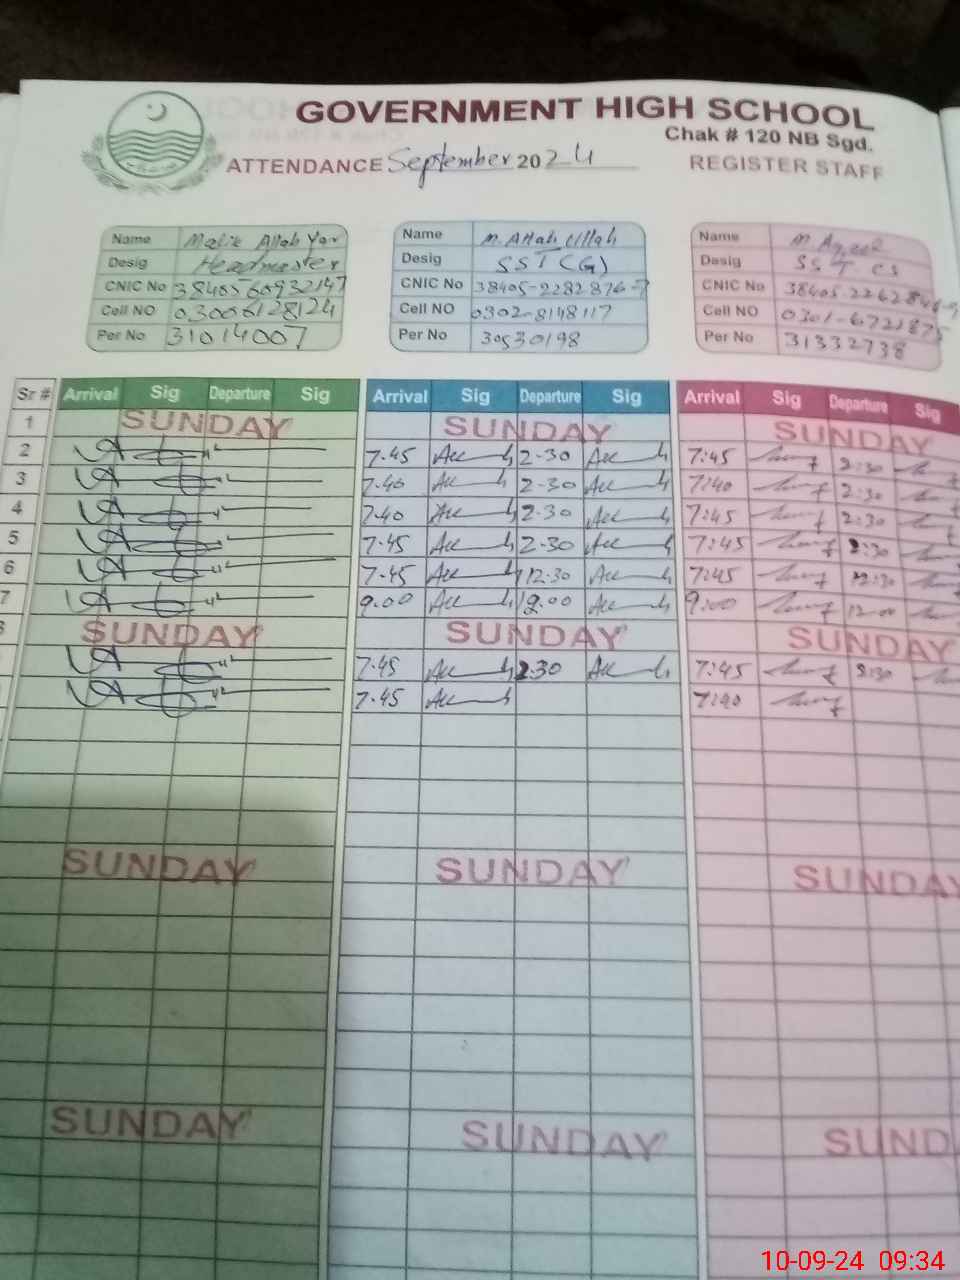 GOVERNMENT HIGH SCHOOL
Chak # 120 NB Sgd.
ATTENDANCE September 2024 REGISTER STAFF
Name Malik Allah Yar
Desig Headmaster
CNIC No 3840560932147
Cell NO 03006128124
Per No 31014007
Name M. Attah Ullah
Desig SST (G)
CNIC No 38405-2282876-7
Cell NO 0302-8148117
Per No 30530198
Name M. Aqeel
Desig SST CS
CNIC No
Cell NO 0301-6721875
Per No 31332738
Sr # Arrival Sig Departure Sig Arrival Sig Departure Sig Arrival Sig Departure Sig
1 SUNDAY SUNDAY SUNDAY
2 7.45 2.30 7:45 2:30
3 7.40 2.30 7:40 2:30
4 7.40 2.30 7:45 2:30
5 7.45 2.30 7:45 2:30
6 7.45 12.30 7:45 12:30
7 9.00 12.00 9:00 12:00
SUNDAY SUNDAY SUNDAY
7.45 2.30 7:45 2:30
7.45 7:40
SUNDAY SUNDAY SUNDAY
SUNDAY SUNDAY SUND
10-09-24 09:34